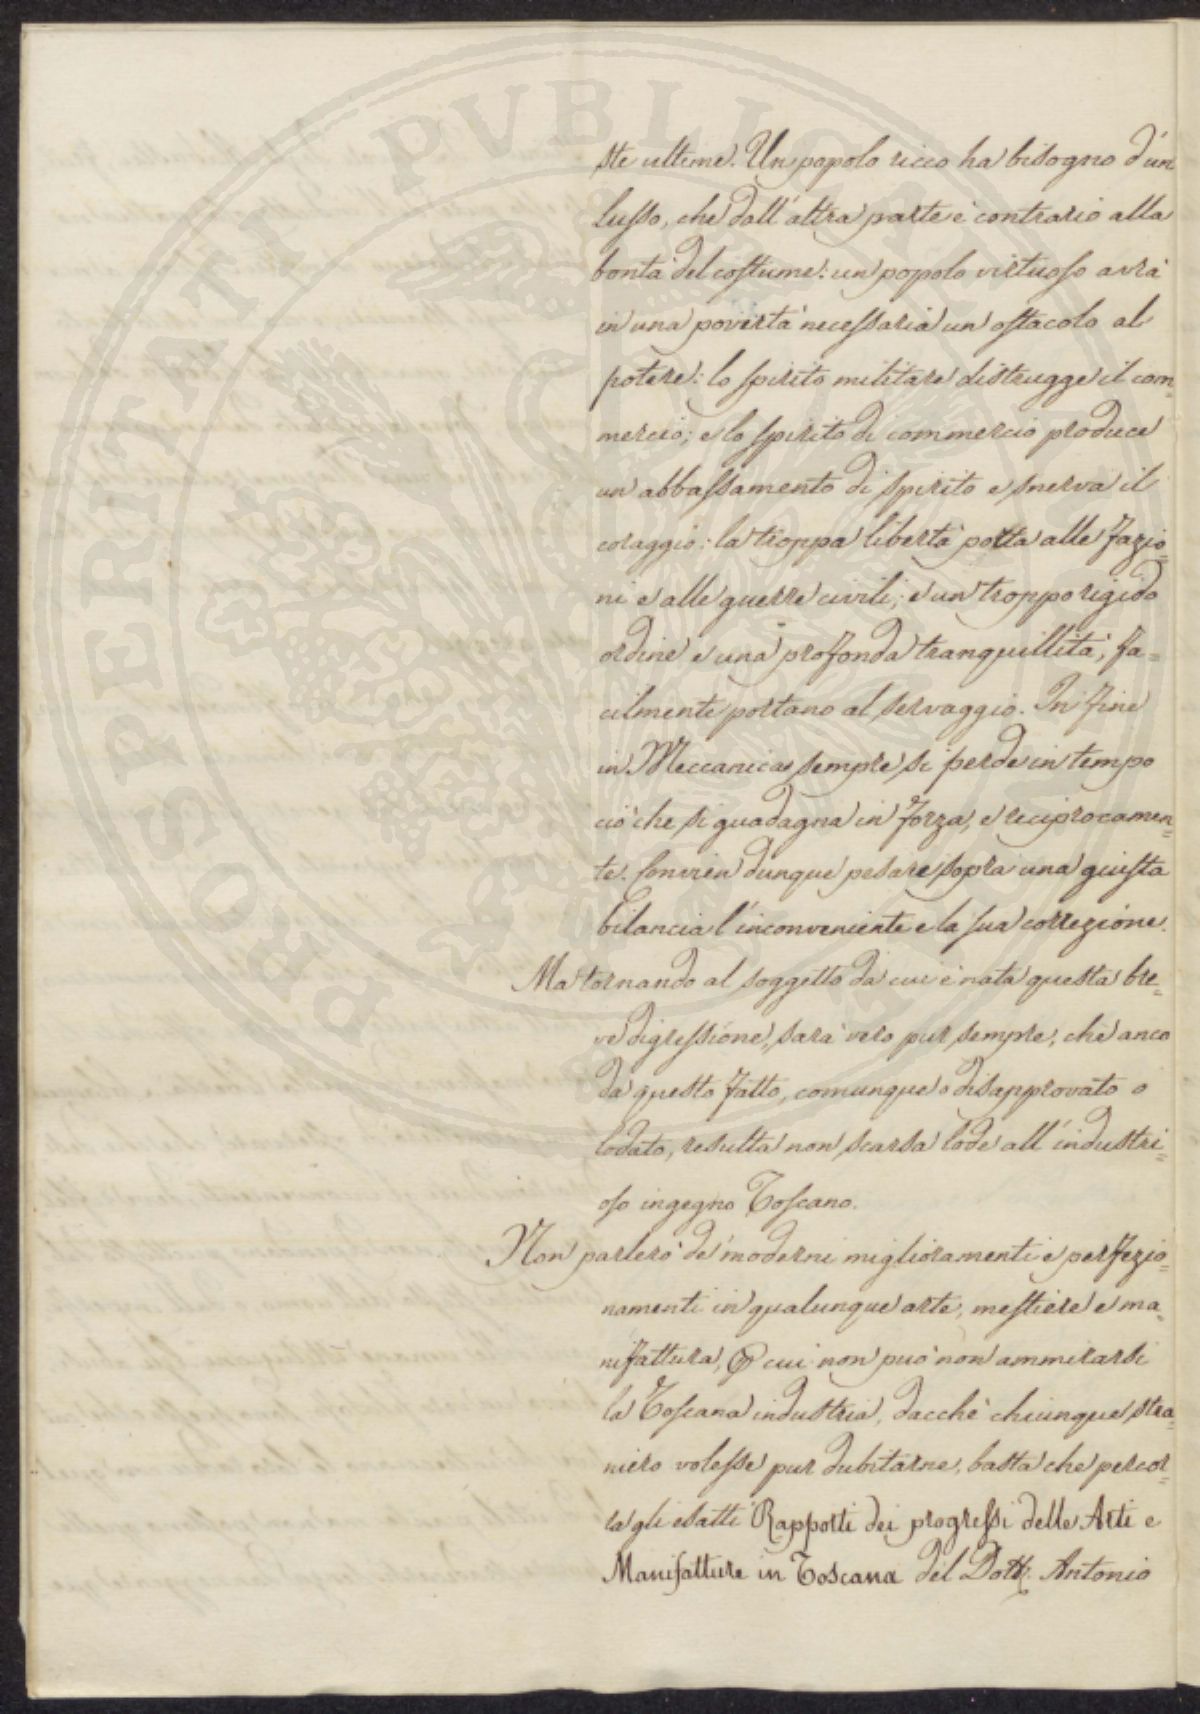 ste ultime. Un popolo ricco ha bisogno d'un
lusso, che dall'altra parte è contrario alla
bontà del costume: un popolo virtuoso avrà
in una povertà necessaria un ostacolo al
potere: lo spirito militare distrugge il com=
mercio; e lo spirito di commercio produce
un abbassamento di spirito e snerva il
coraggio: la troppa libertà porta alle fazio=
ni e alle guerre civili; e un troppo rigido
ordine e una profonda tranquillità, fa=
cilmente portano al servaggio. In fine
in Meccanica sempre si perde in tempo
ciò che si guadagna in forza, e reciprocamen=
te. Convien dunque pesare sopra una giusta
bilancia l'inconveniente e la sua correzione.
Ma tornando al soggetto da cui è nata questa bre=
ve digressione, sarà vero pur sempre, che anco
da questo fatto, comunque o disapprovato o
lodato, resulta non scarsa lode all'industri=
oso ingegno Toscano.
Non parlerò de' moderni miglioramenti e perfezio=
namenti in qualunque arte, mestiere e ma=
nifattura, cui non può non ammirarsi
la Toscana industria, dacchè chiunque stra=
niero volesse pur dubitarne, basta che percor=
ra gli esatti Rapporti dei progressi delle Arti e
Manifatture in Toscana del Dott. Antonio
PROSPERITATI PVBLICAE